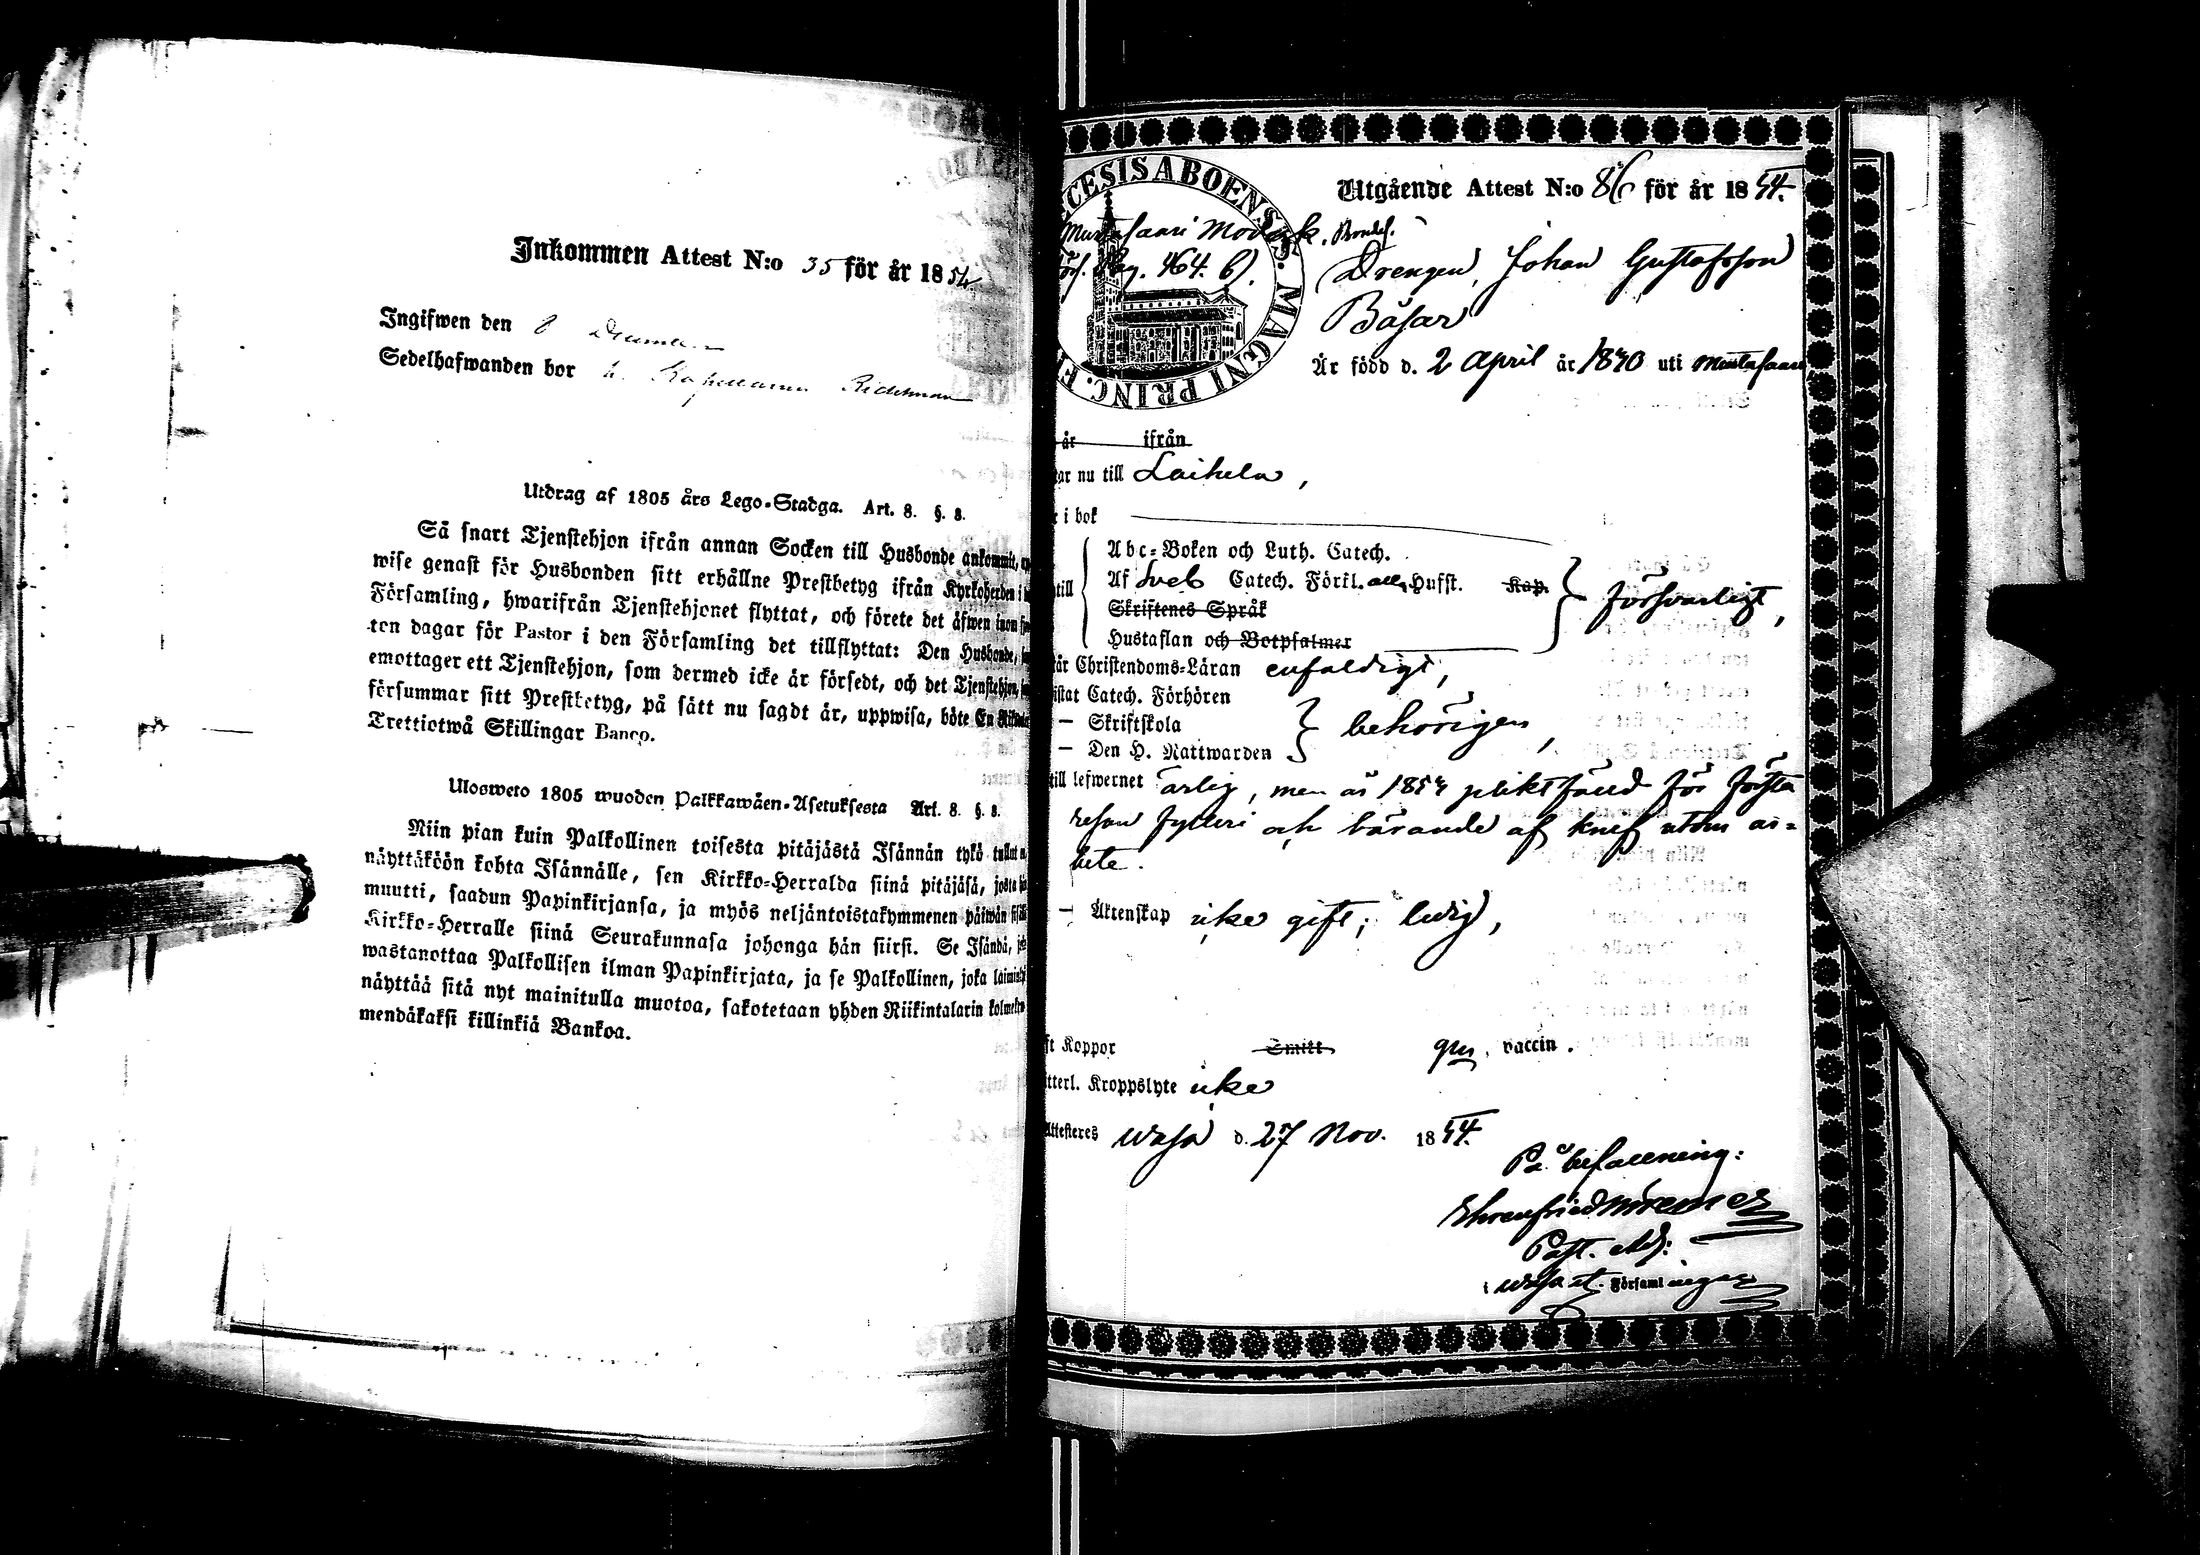 Inkommen Attest N:o 35 för år 1854
Ingifwen den 8 December
Sedelhafwanden bor h. Kapellanen Ridelman
Utdrag af 1805 års Lego-Stadga. Art. 8. §. 8.
Så snart Tjenstehjon ifrån annan Socken till Husbonde ankommit,
wise genast för Husbonden sitt erhållne Prestbetyg ifrån Kyrkoherden i
Församling, hwarifrån Tjenstehjonet flyttat, och förete det äfwen inom
ton dagar för Pastor i den Församling det tillflyttat: Den Husbonde,
emottager ett Tjenstehjon, som dermed icke är försedt, och det Tjenstehjon,
försummar sitt Prestbetyg, på sätt nu sagdt är, uppwisa, böte En
Trettiotwå Skillingar Banco.
Ulosweto 1805 wuoden Palkkawäen-Asetuksesta Art. 8. §. 8.
Niin pian kuin Palkollinen toisesta pitäjästä Isännän tykö tullut
näyttäköön kohta Isännälle, sen Kirkko-Herralda siinä pitäjäsä, josta
muutti, saadun Papinkirjansa, ja myös neljäntoistakymmenen päiwän
Kirkko-Herralle siinä Seurakunnasa johonga hän siirsi. Se Isändä,
wastanottaa Palkollisen ilman Papinkirjata, ja se Palkollinen, joka
näyttää sitä nyt mainitulla muotoa, sakotetaan yhden Riikintalarin
mendäkaksi killinkiä Bankoa.
CESIS ABOENS. MAGNI PRINC. F
Utgående Attest N:o 86 för år 1854.
Mustasaari Moderk. Bondes.
förs. Pag. 464. b).
Drengen, Johan Gustafsson
Båsar
Är född d. 2 April år 1830 uti Mustasaari
år ifrån
ar nu till Laihela,
i bok
Abc-Boken och Luth. Catech.
till Af Sveb Catech. Förkl. all. Husst. Kap.
Skriftenes Språk
försvarligt,
Hustaflan och Botpsalmer
år Christendoms-Läran enfaldigt,
istat Catech. Förhören
— Skriftskola
behörigen,
— Den H. Nattwarden
till lefwernet ärlig, men år 1854 pliktfäld för första
resan fylleri och bärande af knif utom ar=
bete.
— Äktenskap icke gift; ledig,
ft Koppor Smitt, gm. vaccin.
tterl. Kroppslyte icke
Attesteres Wasa d. 27 Nov. 1854.
På befallning:
Ehrenfried
Past. Adj:
i Wasa st. Församlingar